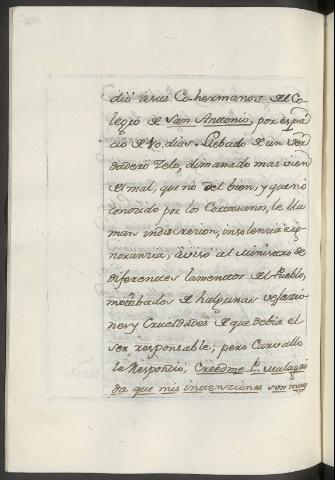 dió à sus Co-hermanos del Co-
legio de San Anttonio, por espa-
cio de 10. dias. Llebado de un ver-
dadero Zelo, dimanado mas vien
del mal, que no del bien, y que no
conocido por los Cortesanos, le lla-
man indiscrecion, insolencia è ig-
norancia, aviso al Ministro de
diferentes lamentos del Pueblo,
motibados de halgunas vejazio-
nes y Crueldades de que debia el
ser responsable; pero Carvallo
le Respondió, Creedme P. Malagri
da que mis intenziones son muy